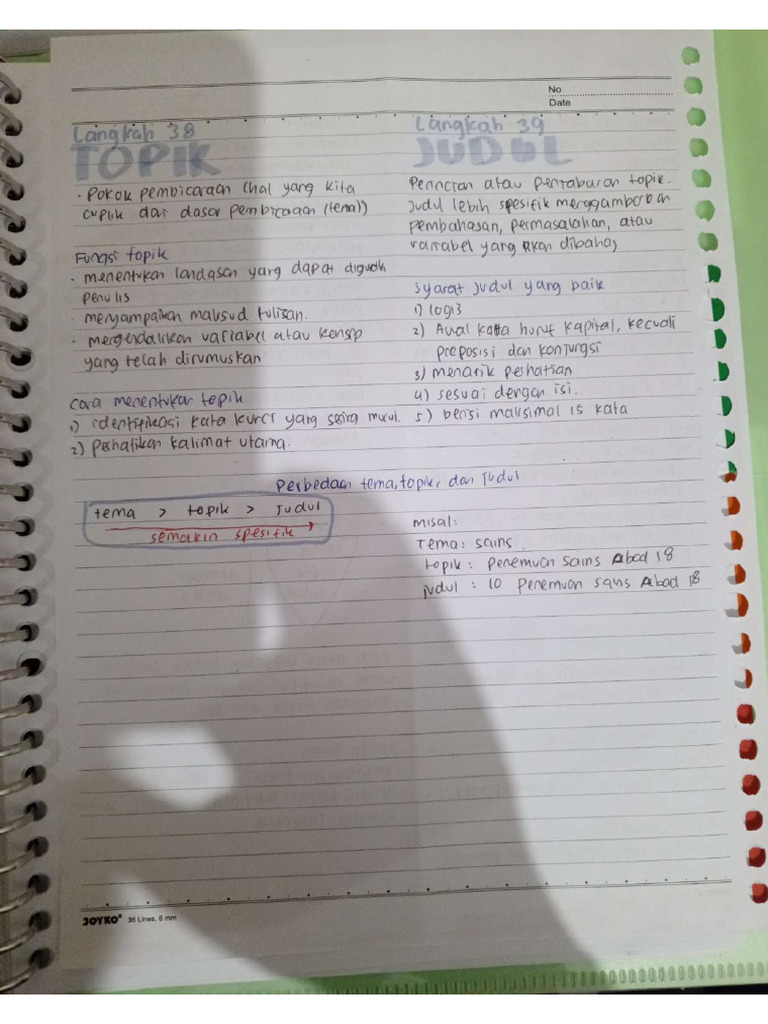 No
Date
Langkah 38
TOPIK
• Pokok pembicaraan (hal yang kita
cuplik dari dasar pembicaraan (tema))
Fungsi topik
• menentukan landasan yang dapat digunakan
penulis
• menyampaikan maksud tulisan.
• mengendalikan variabel atau konsep
yang telah dirumuskan
Cara menentukan topik
1) identifikasi kata kunci yang sering muncul.
2) perhatikan kalimat utama.
Langkah 39
JUDUL
Perincian atau penjabaran topik.
Judul lebih spesifik menggambarkan
pembahasan, permasalahan, atau
variabel yang akan dibahas
Syarat judul yang baik
1) logis
2) Awal kata huruf kapital, kecuali
preposisi dan konjungsi
3) menarik perhatian
4) sesuai dengan isi.
5) berisi maksimal 15 kata
Perbedaan tema, topik, dan Judul
tema > topik > Judul
semakin spesifik
misal:
Tema: sains
topik: Penemuan sains Abad 18
judul : 10 Penemuan sains Abad 18
JOYKO® 36 Lines, 8 mm